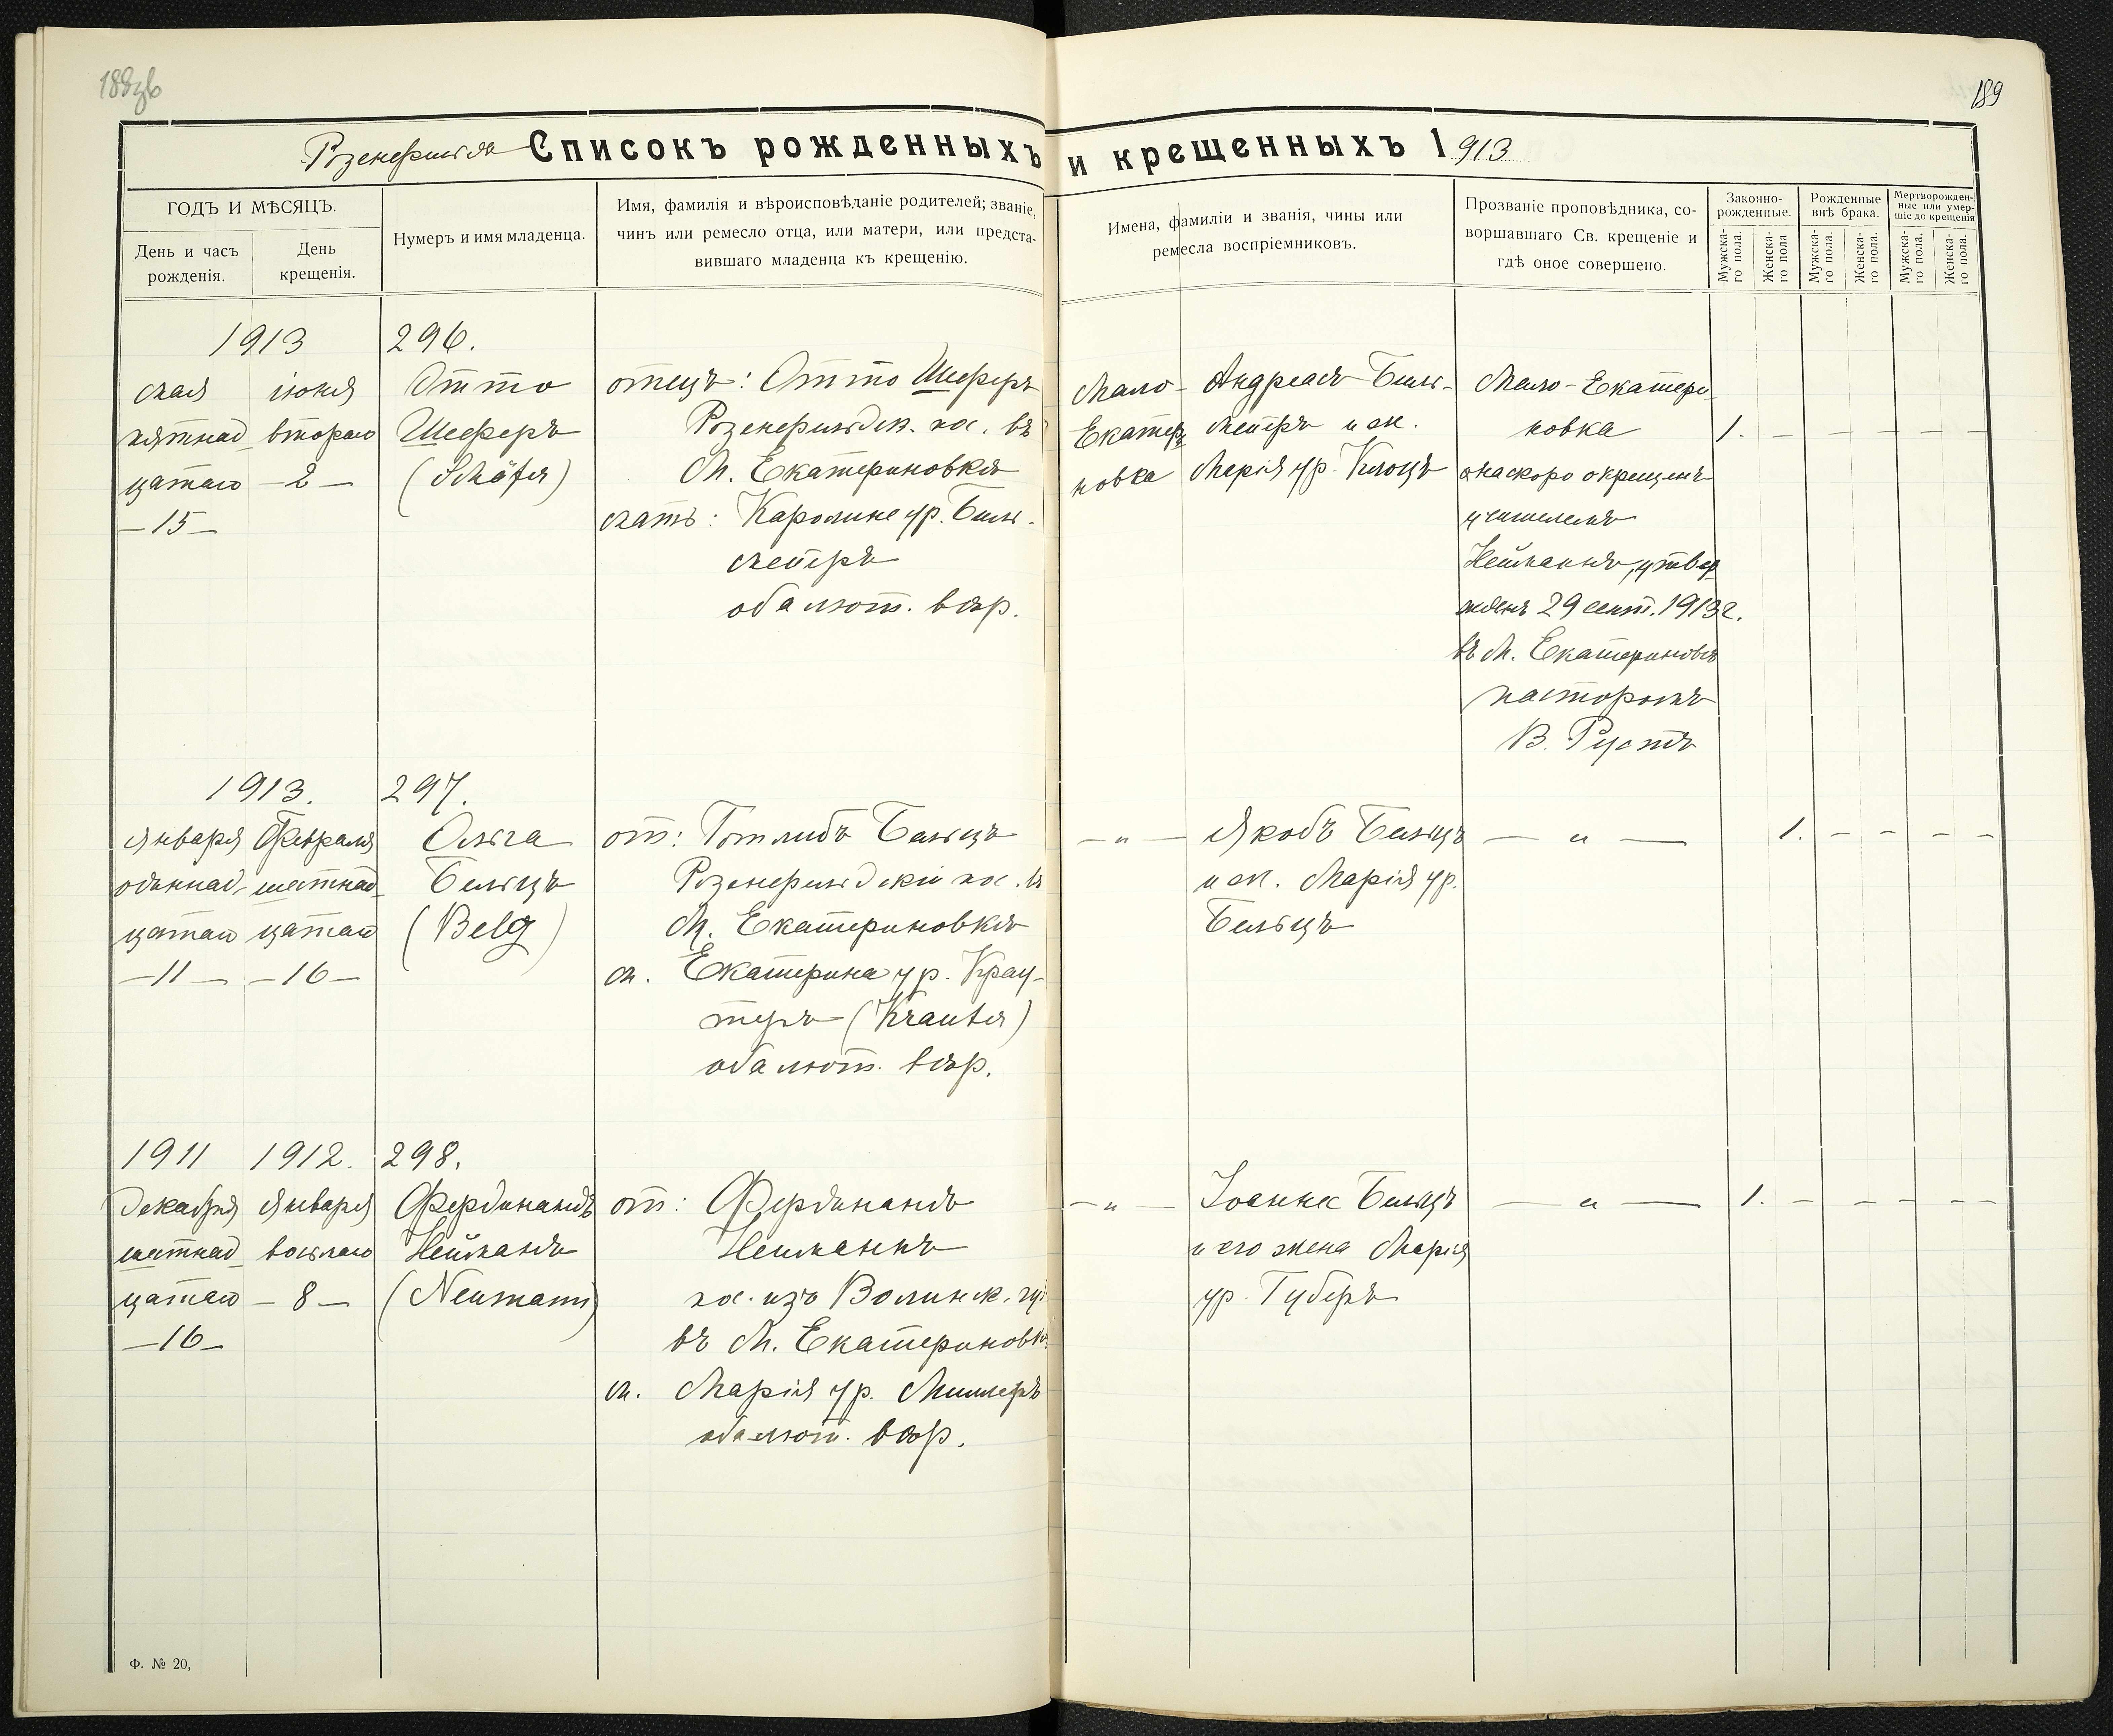 188зв
189
Розенфельдъ Списокъ рожденныхъ и крещенныхъ 1913
ГОДЪ И МѢСЯЦЪ.
День и часъ рожденія.
День крещенія.
Нумеръ и имя младенца.
Имя, фамилія и вѣроисповѣданіе родителей; званіе,
чинъ или ремесло отца, или матери, или предста-
вившаго младенца къ крещенію.
Имена, фамиліи и званія, чины или
ремесла воспріемниковъ.
Прозваніе проповѣдника, со-
воршавшаго Св. крещеніе и
гдѣ оное совершено.
Законно-
рожденные.
Рожденные
внѣ брака.
Мертворожден-
ные или умер-
шіе до крещенія
Мужска-
го пола.
Женска-
го пола
Мужска-
го пола.
Женска-
го пола.
Мужска-
го пола.
Женска-
го пола.
1913
мая
пятнад
цатаго
—15—
іюня
втораго
—2—
296.
Отто
Шеферъ
(Schäfer)
отецъ: Отто Шеферъ
Розенфельдск. пос. въ
М. Екатериновкѣ
мать: Каролине ур. Биль-
мейеръ
оба лют. вѣр.
Мало-
Екатери
новка
Андреасъ Биль-
мейеръ и ж.
Марія ур. Клоцъ
Мало-Екатери
новка
наскоро окрещенъ
учителемъ
Нейманнъ, утвер
жденъ 29 сент. 1913 г.
въ М. Екатериновкѣ
пасторомъ
В. Рустъ
1. — — — — —
1913.
января
одиннад-
цатаго
—11—
Февраля
шестнад
цатаго
—16—
297.
Ольга
Бельцъ
(Belz)
от: Готлибъ Бельцъ
Розенфельдскій пос. въ
М. Екатериновкѣ
м. Екатерина ур. Крау-
теръ (Krauter)
оба лют. вѣр.
— " —
Якобъ Бельцъ
и ж. Марія ур.
Бельцъ
— " —
1. — — — —
1911
декабря
шестнад
цатаго
—16—
1912.
января
восьмаго
—8—
298.
Фердинандъ
Нейманъ
(Neumann)
от: Фердинандъ
Нейманнъ
пос. изъ Волынск. губ
въ М. Екатериновкѣ
м. Марія ур. Миллеръ
оба лют. вѣр.
— " —
Іоаннес Бельцъ
и его жена Марія
ур. Губеръ
— " —
1. — — — — —
Ф. № 20,